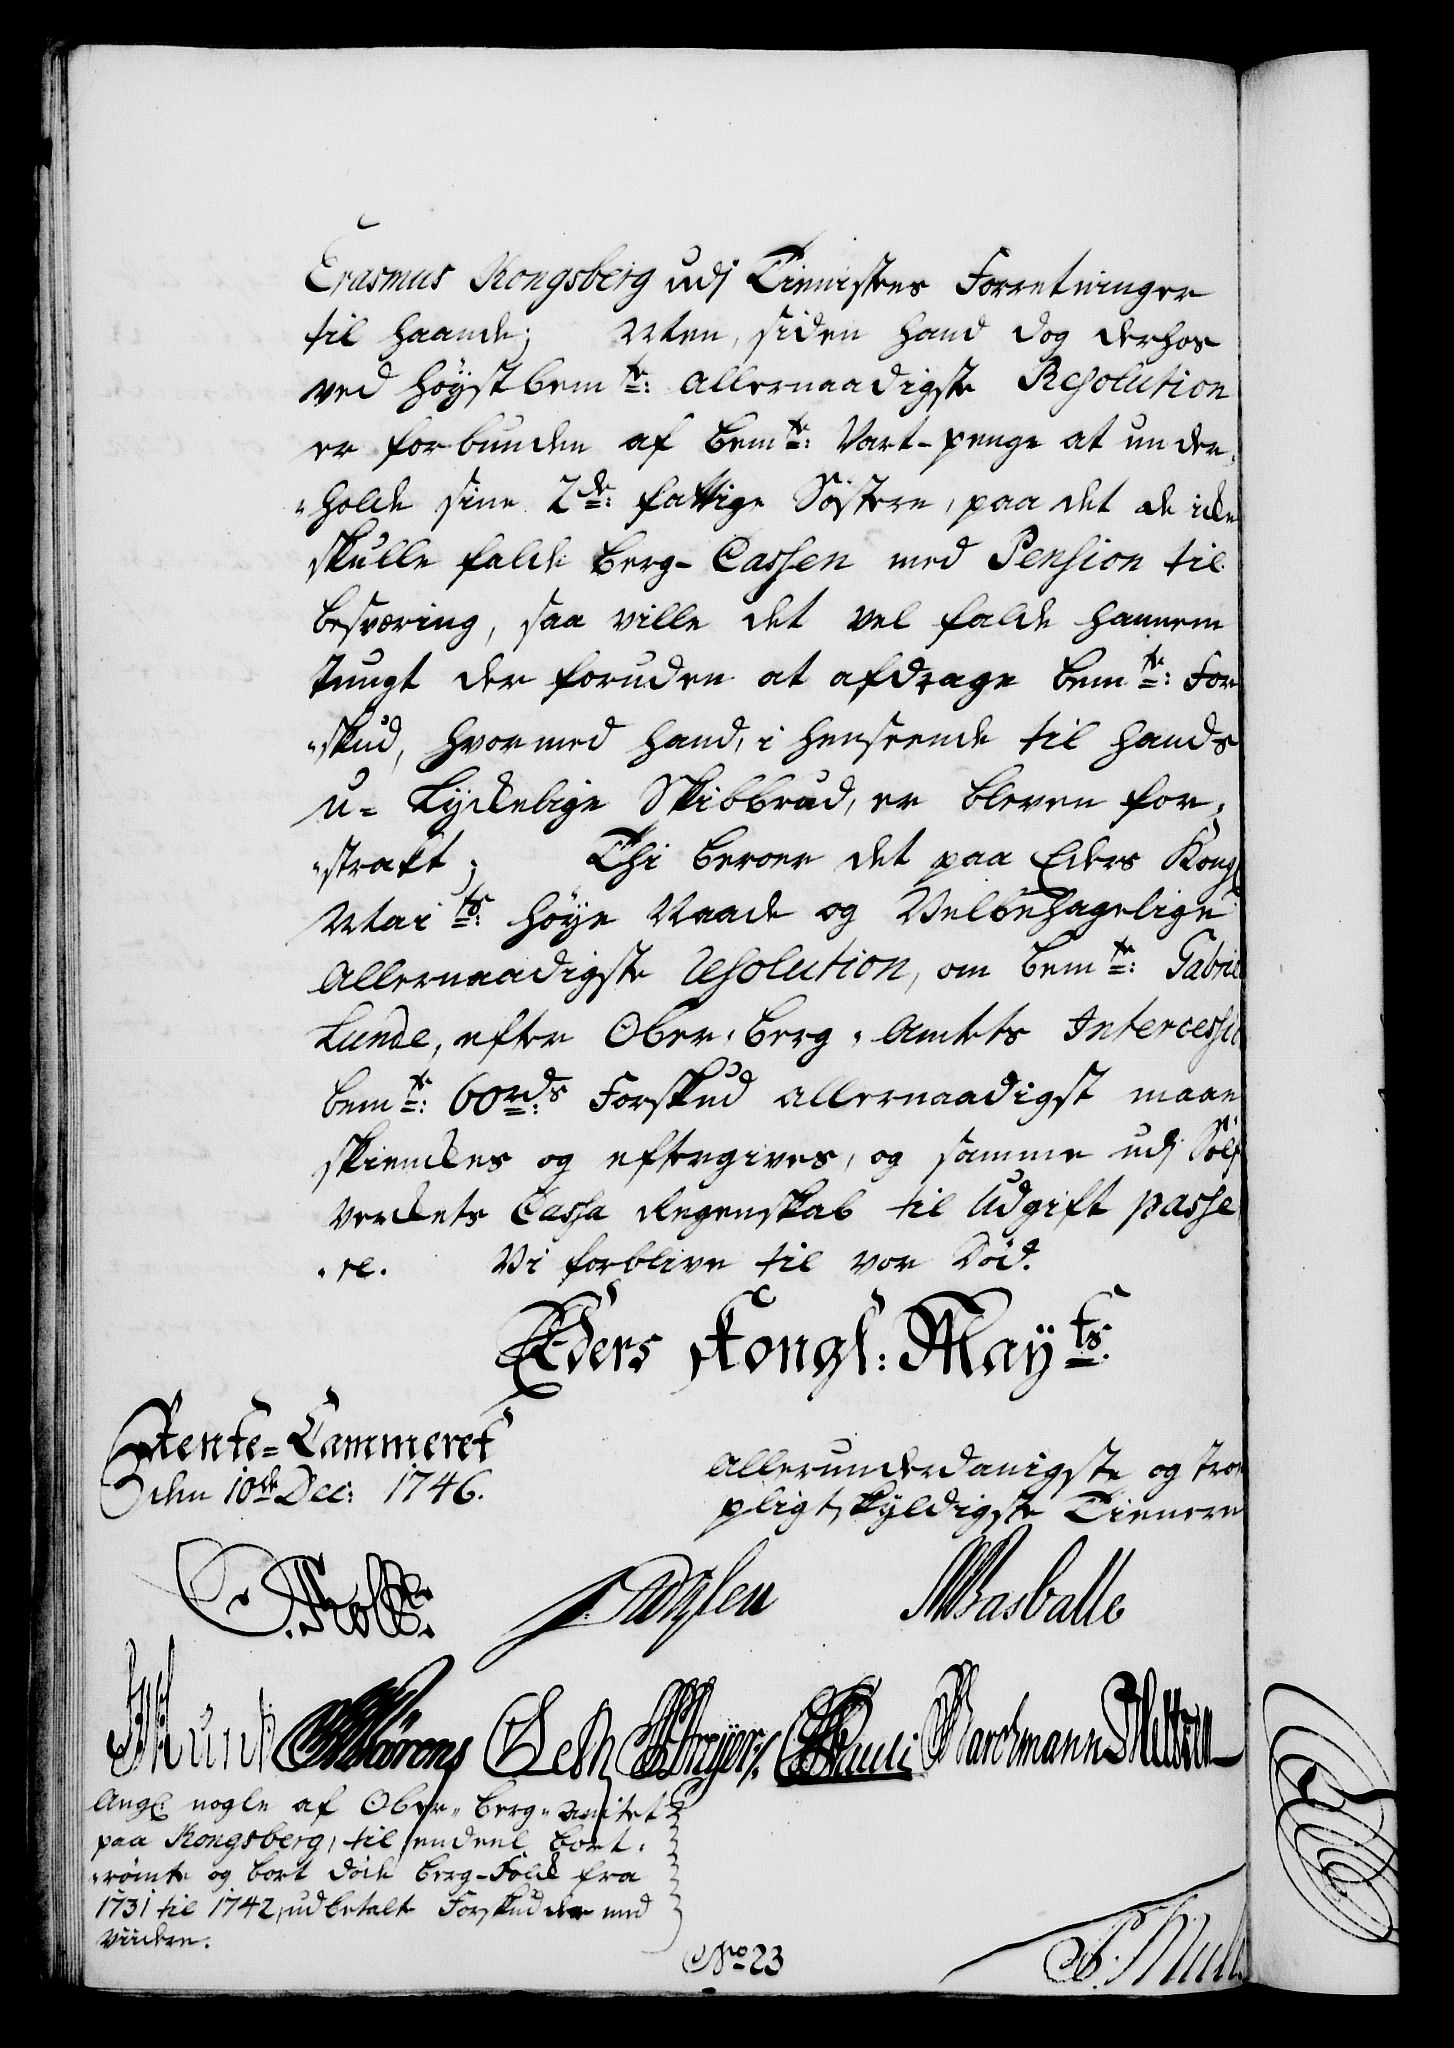 Erasmus Kongsberg udj Tienistens Forretninger
til haande; Men, siden hand dog derhos
ved høystbemte: allernaadigste Resolution
er forbunden af bemte: Vart-penge at under-
"holde sine 2de: fattige Søstere, paa det de icke
skulle falde Berg-Cassen med Pension til
besværing, saa ville det vel falde hannem
tungt der foruden at afdrage bemte: For
"skud, hvormed hand, i henseende til hands
u-Lyckelige Skibbrud, er bleven for-
"strakt; Thi beroer det paa Eders Kongl
Maits: høye Naade og Velbehagelige
Allernaadigste Resolution, om bemte: Gabriel
Lunde, efter Ober-Berg-Amtets Intercession
bemte: 60rds: Forskud allernaadigst maae
skienckes og eftergives, og samme udj Sølf
verckets Cassa Regenskab til Udgift passe
"re. Vi forblive til vor Død.
Eders Kongl: Mayts:
Rente-Cammeret
den 10de Dec: 1746.
allerunderdanigste og troe
pligtskyldigste Tienere
Basballe
Munk Selh Pauli Barchmann
Angl: nogle af Ober-Berg-Amtet
paa Kongsberg, til endeel bort-
"rømte og bort døde Berg-Folck fra
1731 til 1742, udbetalte Forskudder med
viidere.
No 23